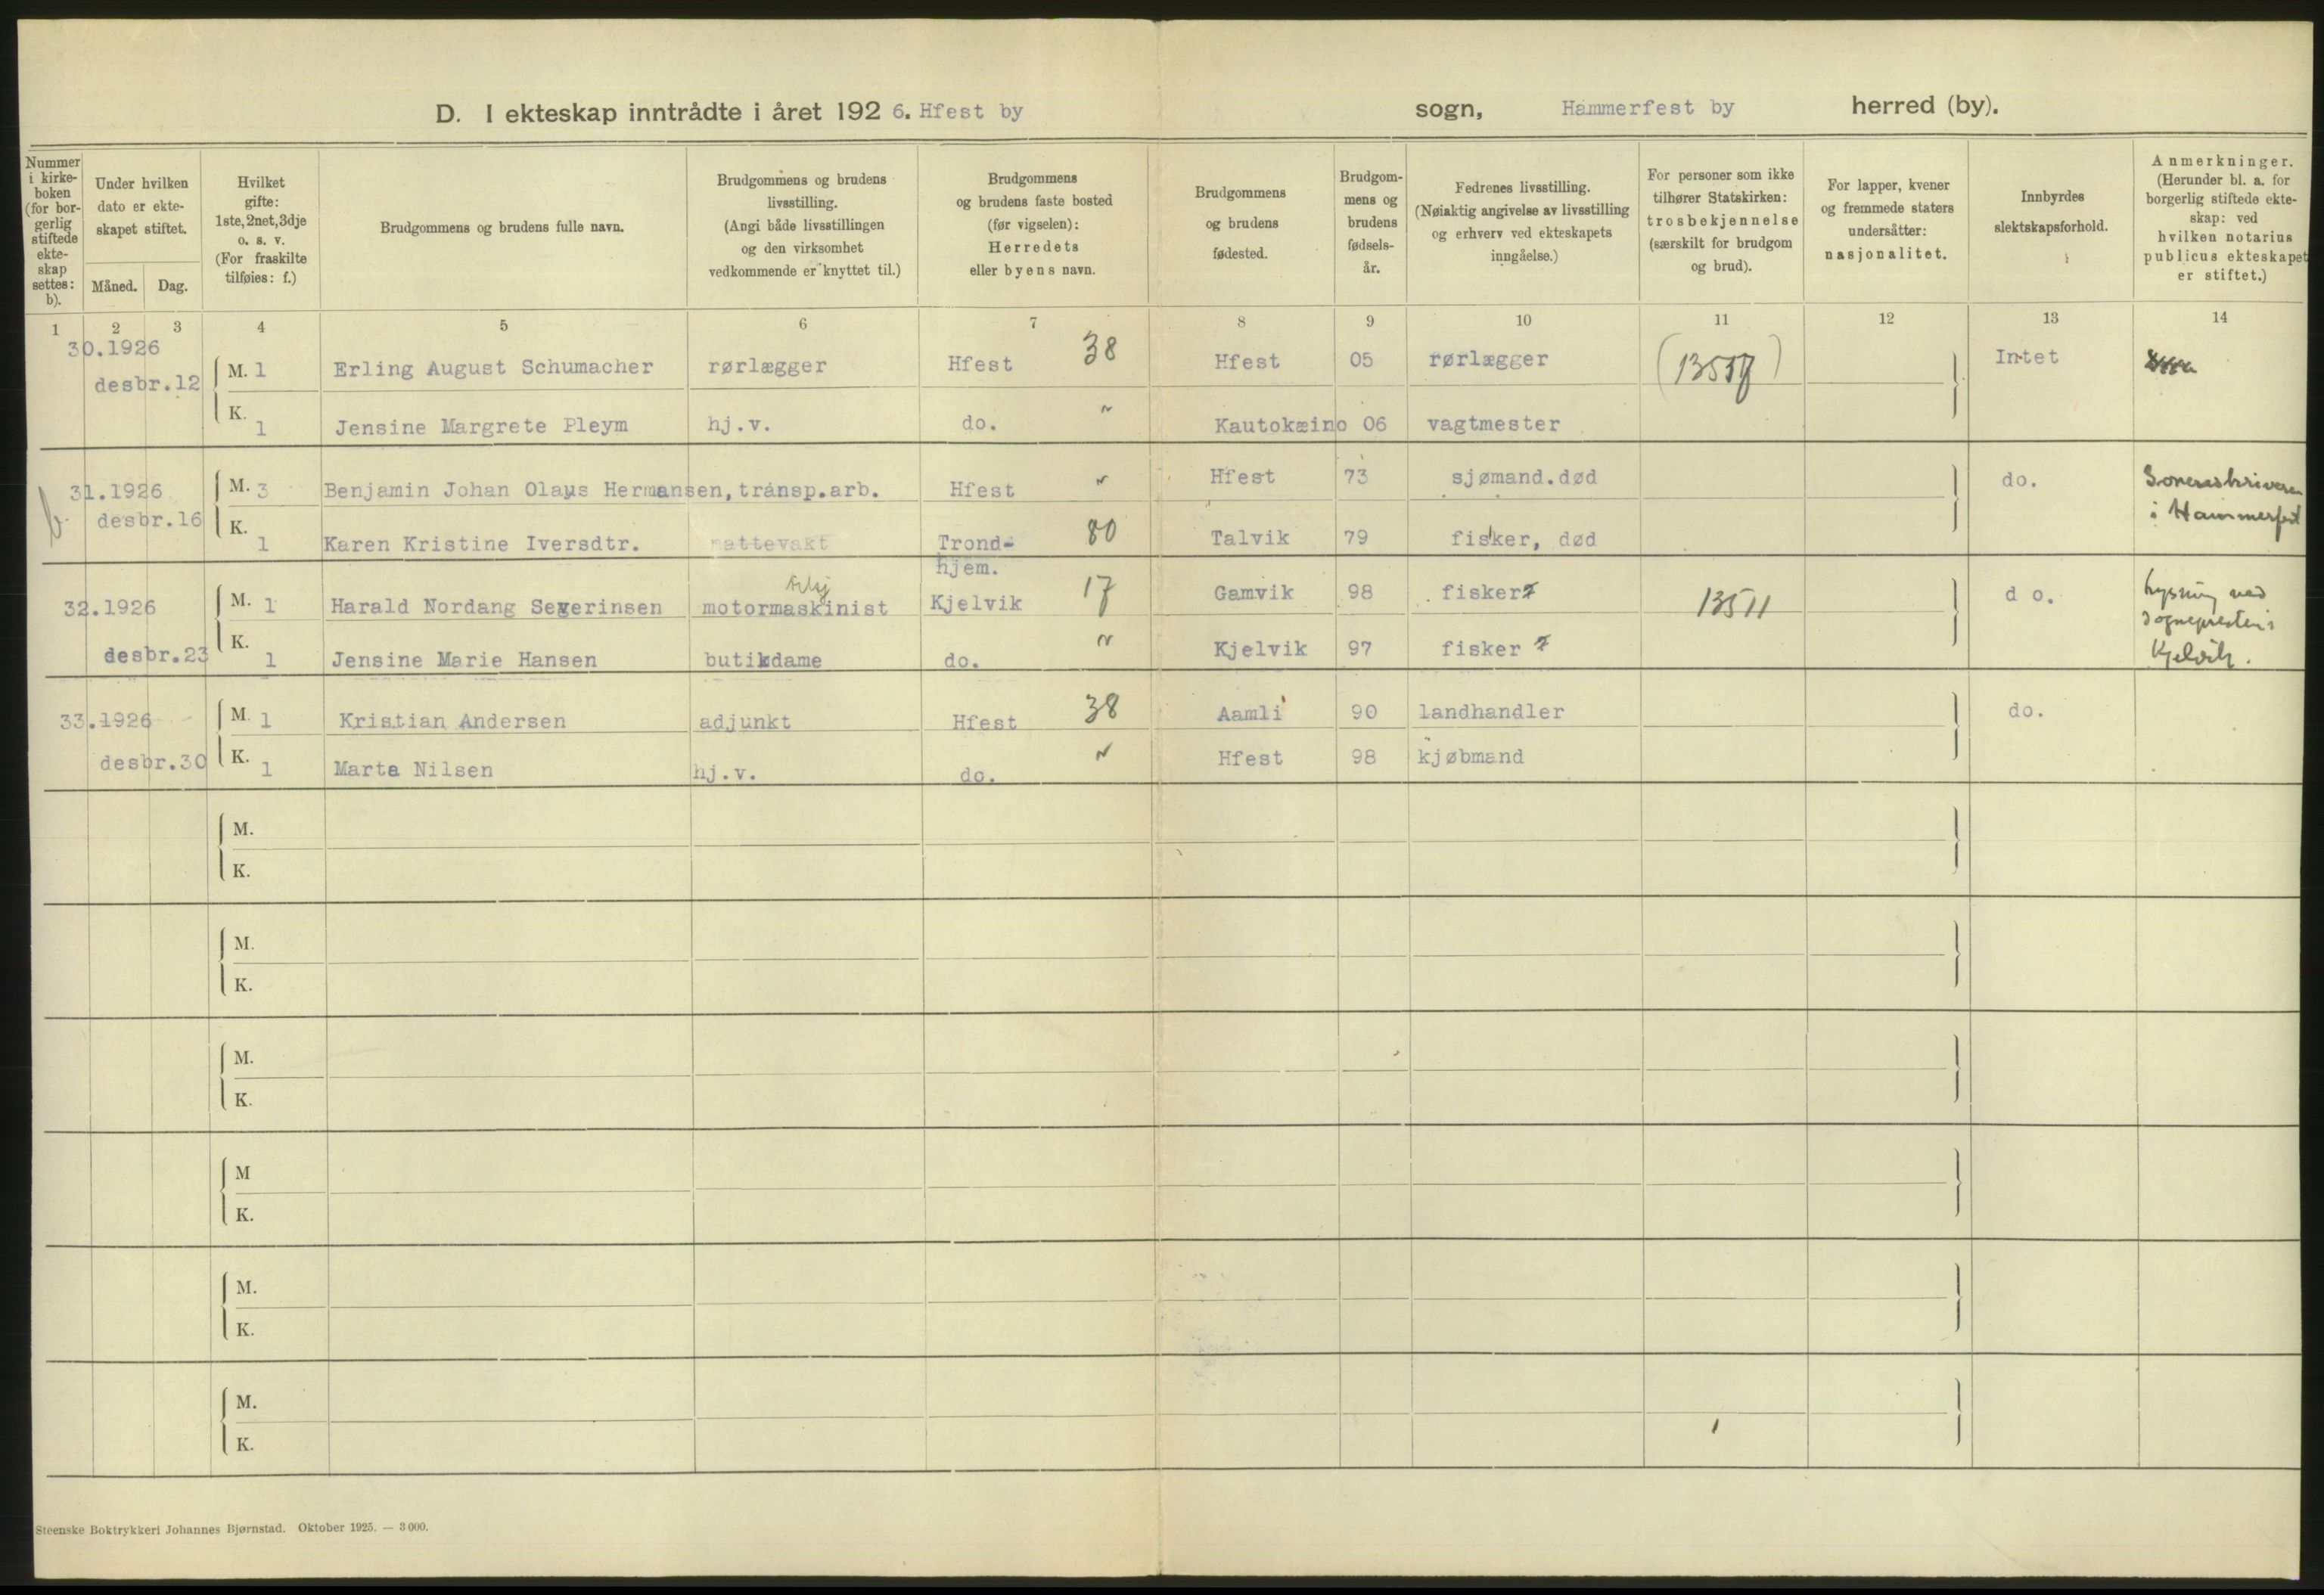 D. I ekteskap inntrådte i året 1926. Hfest by sogn, Hammerfest by herred (by).
Nummer i kirke-boken (for bor-gerlig stiftede ekte-skap settes: b).
Under hvilken dato er ekte-skapet stiftet.
Måned. Dag.
Hvilket gifte: 1ste, 2net, 3dje o. s. v. (For fraskilte tilføies: f.)
Brudgommens og brudens fulle navn.
Brudgommens og brudens livsstilling. (Angi både livsstillingen og den virksomhet vedkommende er knyttet til.)
Brudgommens og brudens faste bosted (før vigselen): Herredets eller byens navn.
Brudgommens og brudens fødested.
Brudgom-mens og brudens fødsels-år.
Fedrenes livsstilling. (Nøiaktig angivelse av livsstilling og erhverv ved ekteskapets inngåelse.)
For personer som ikke tilhører Statskirken: trosbekjennelse (særskilt for brudgom og brud).
For lapper, kvener og fremmede staters undersåtter: nasjonalitet.
Innbyrdes slektskapsforhold.
Anmerkninger. (Herunder bl. a. for borgerlig stiftede ekte-skap: ved hvilken notarius publicus ekteskapet er stiftet.)
1 2 3 4 5 6 7 8 9 10 11 12 13 14
30.1926 M. 1 Erling August Schumacher rørlægger Hfest 38 Hfest 05 rørlægger Intet
desbr.12 K. 1 Jensine Margrete Pleym hj.v. do. " Kautokæino 06 vagtmester
b. 31.1926 M. 3 Benjamin Johan Olaus Hermansen, transp.arb. Hfest " Hfest 73 sjømand.død do. Sorenskriveren
desbr.16 K. 1 Karen Kristine Iversdtr. nattevakt Trond-hjem. 80 Talvik 79 fisker, død i Hammerfest
32.1926 M. 1 Harald Nordang Severinsen motormaskinist Kjelvik 17 Gamvik 98 fisker 13511 d o. Lysning ved
sognepresten i
desbr.23 K. 1 Jensine Marie Hansen butikdame do. " Kjelvik 97 fisker Kjelvik.
33.1926 M. 1 Kristian Andersen adjunkt Hfest 38 Aamli 90 landhandler do.
desbr.30 K. 1 Marta Nilsen hj.v. do. " Hfest 98 kjøbmand
M.
K.
M.
K.
M.
K.
M
K.
M.
K.
M.
K.
Steenske Boktrykkeri Johannes Bjørnstad. Oktober 1925. — 3000.